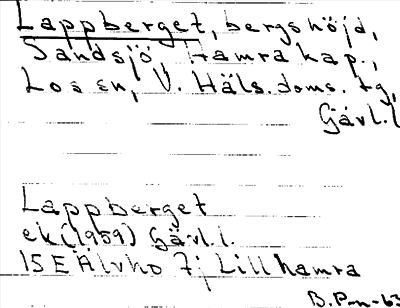 Lappberget, bergshöjd,
Sandsjö, Hamra kap.,
Los sn, V. Häls. doms. tg,
Gävl.l
Lappberget
ek (1959) Gävl.l.
15E Älvho 7j Lillhamra
B.P-n-63